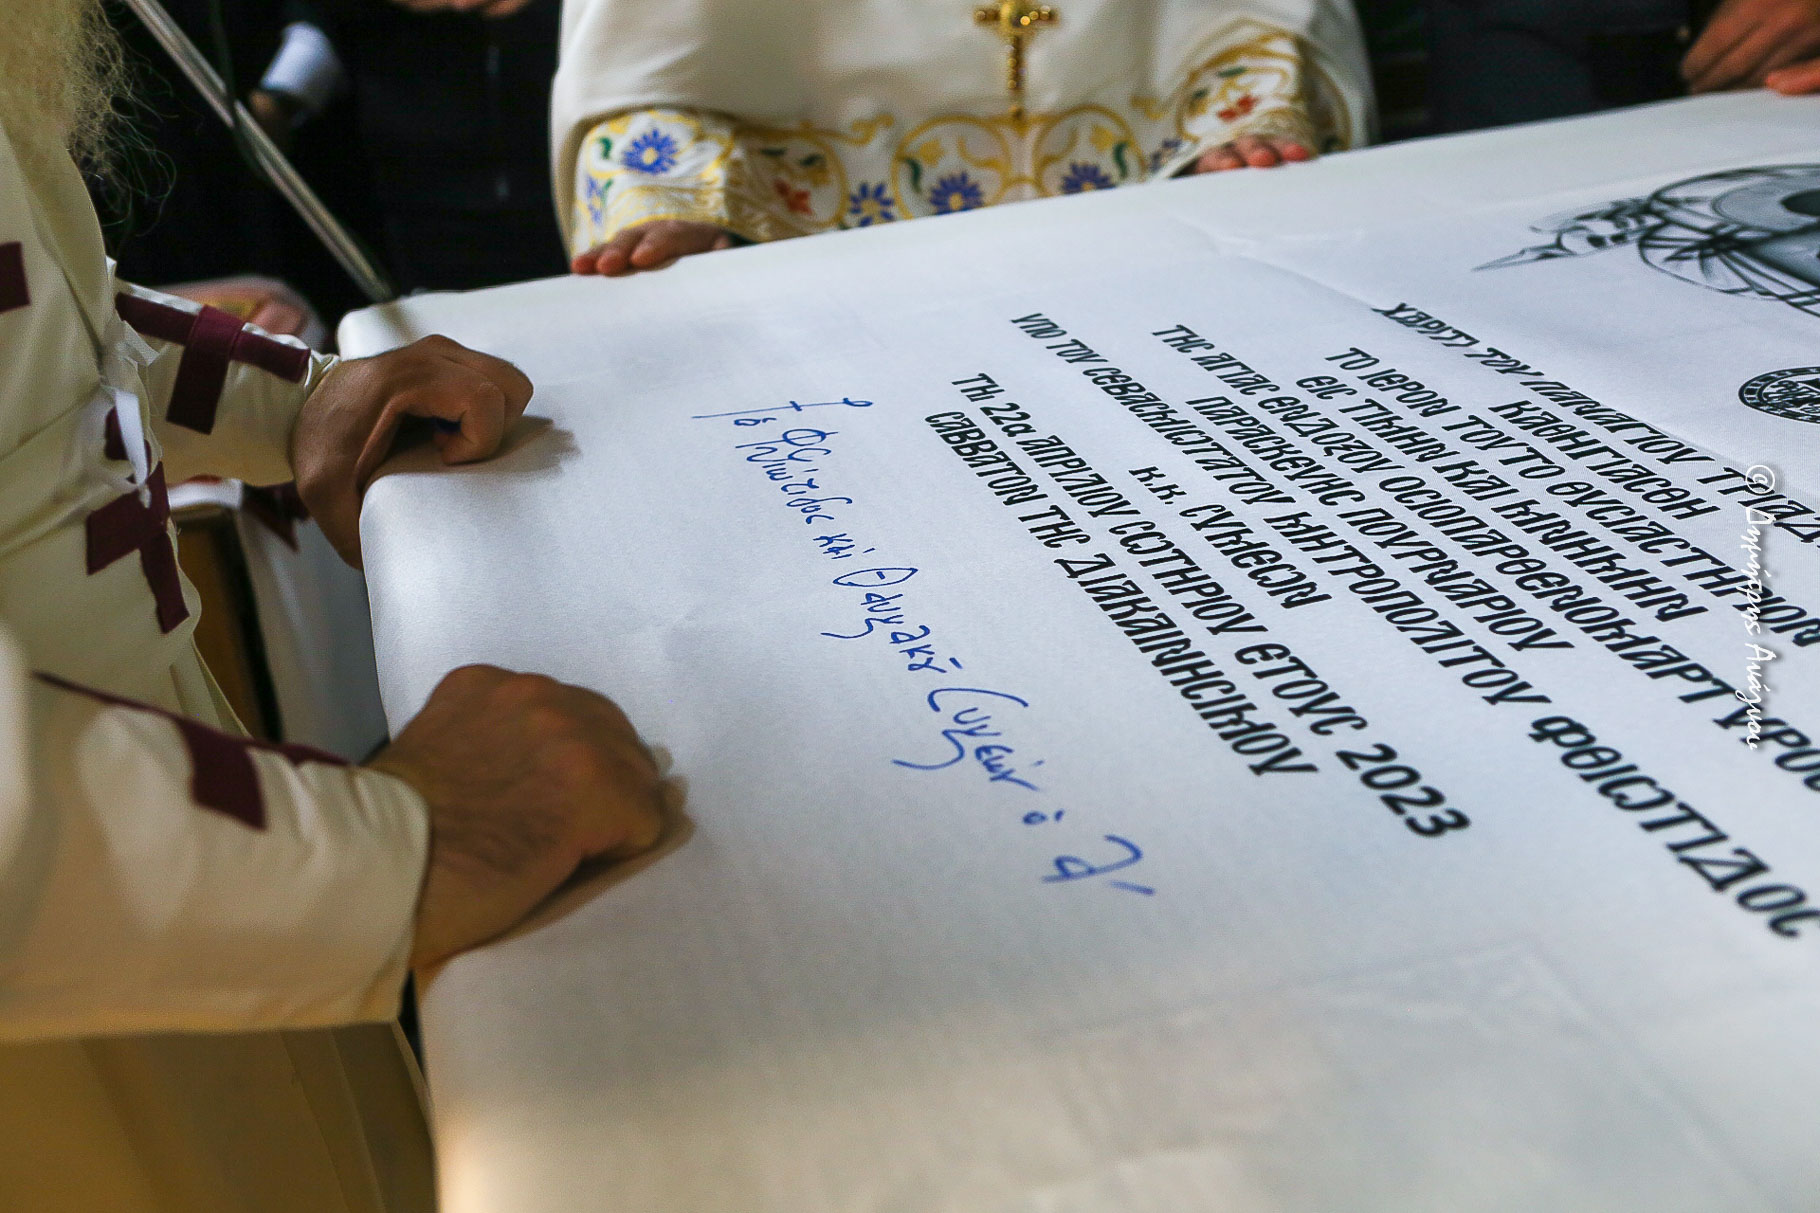 ΧΑΡΙΤΙ ΤΟΥ ΠΑΝΑΓΙΟΥ
ΚΑΘΗΓΙΑCΘΗ
ΤΟ ΙΕΡΟΝ ΤΟΥΤΟ ΘΥCΙΑCΤΗΡΙΟΝ
ΕΙC ΤΙΜΗΝ ΚΑΙ ΜΝΗΜΗΝ
ΤΗC ΑΓΙΑC ΕΝΔΟΞΟΥ ΟCΙΟΠΑΡΘΕΝΟΜΑΡΤΥΡΟC
ΠΑΡΑCΚΕΥΗC ΠΟΥΡΝΑΡΙΟΥ
ΥΠΟ ΤΟΥ CΕΒΑCΜΙΩΤΑΤΟΥ ΜΗΤΡΟΠΟΛΙΤΟΥ ΦΘΙΩΤΙΔΟC
Κ.Κ. CΥΜΕΩΝ
ΤΗ 22α ΑΠΡΙΛΙΟΥ CΩΤΗΡΙΟΥ ΕΤΟΥC 2023
CΑΒΒΑΤΟΝ ΤΗC ΔΙΑΚΑΙΝΗCΙΜΟΥ
Φθιώτιδος καί Συμεών ὁ Α΄
© Δημήτρης Ανάγνου